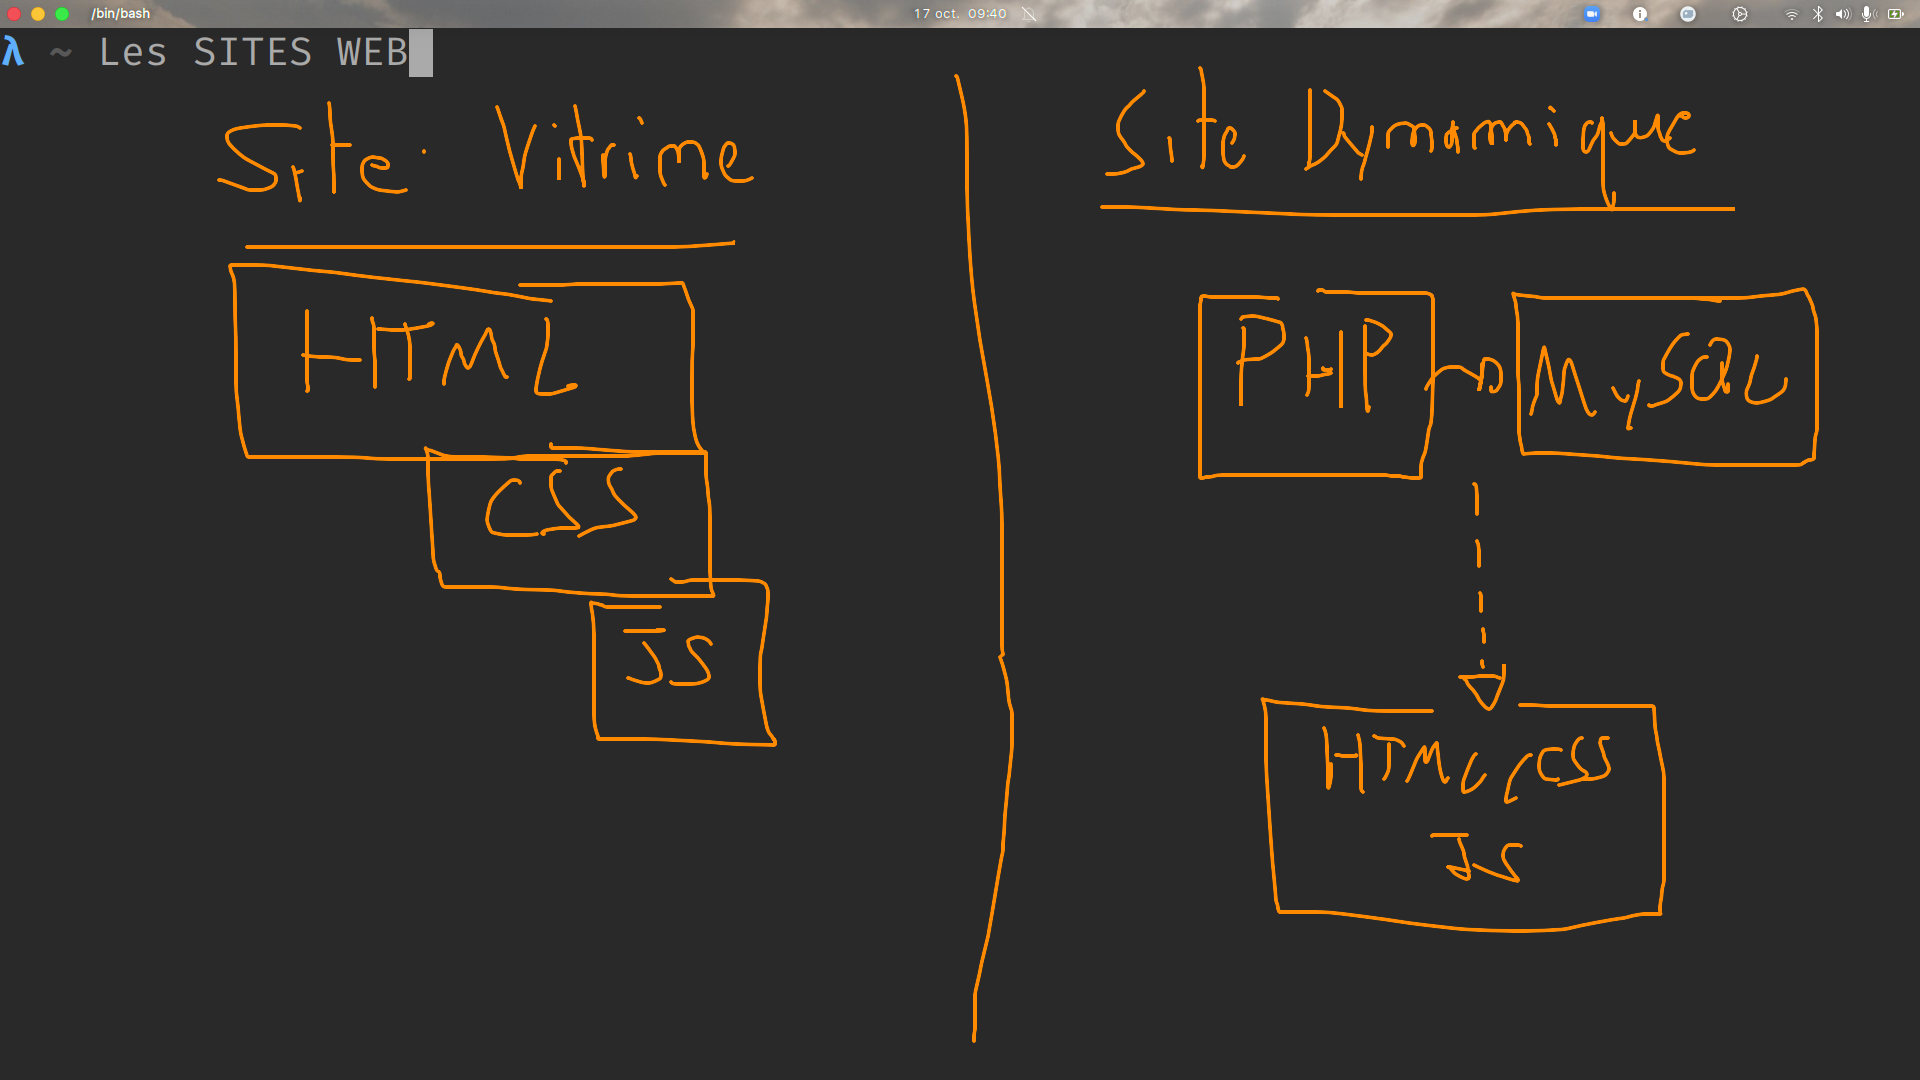 /bin/bash
17 oct. 09:40
λ ~ Les SITES WEB
Site Vitrine
HTML
CSS
JS
Site Dynamique
PHP
MySQL
HTML, CSS
JS